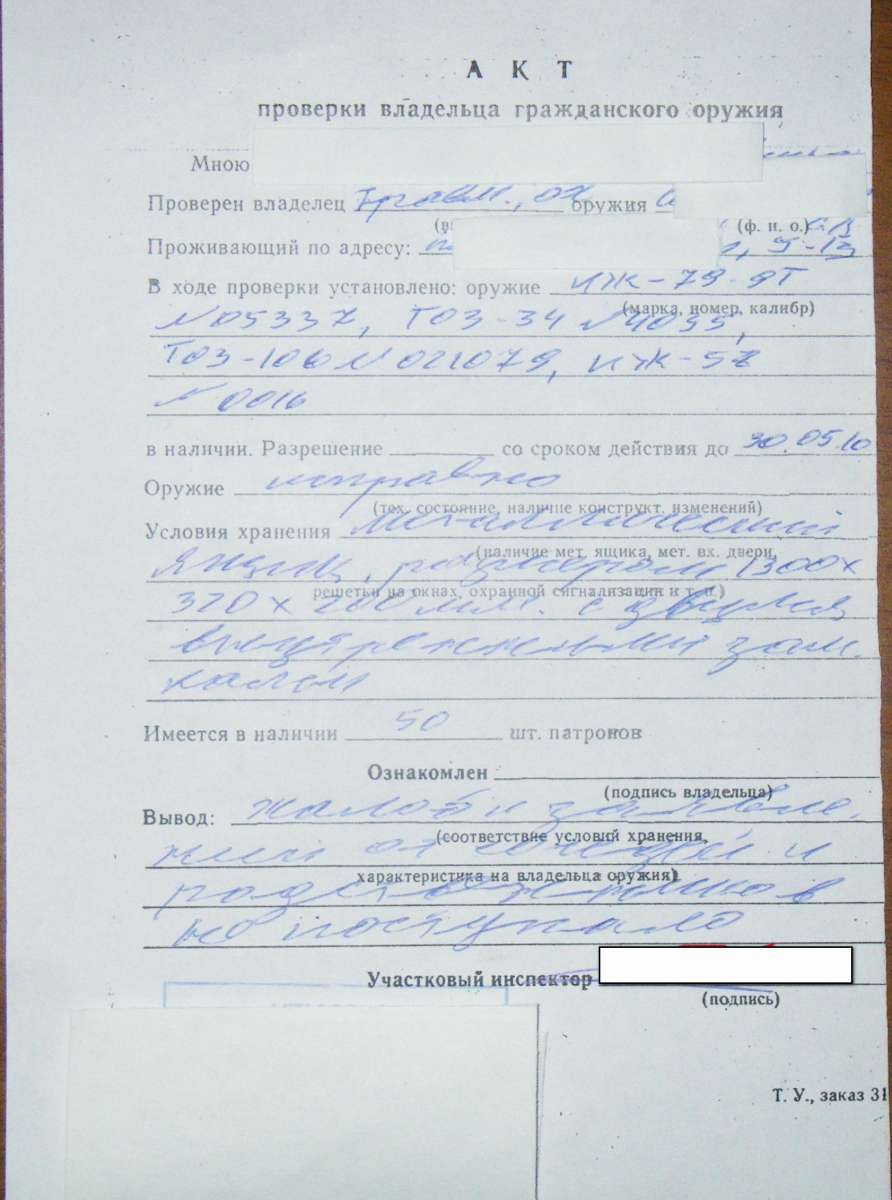 АКТ
проверки владельца гражданского оружия
Мною
Проверен владелец травм., ох. оружия
(ф. и. о.)
Проживающий по адресу: 5-13
В ходе проверки установлено: оружие ИЖ-79-9Т
(марка, номер, калибр)
№05337, ТОЗ-34 №4055,
ТОЗ-106 №021079, ИЖ-58
№0016
в наличии. Разрешение со сроком действия до 30.05.10
Оружие исправно
(тех. состояние, наличие конструкт. изменений)
Условия хранения металлический
(наличие мет. ящика, мет. вх. двери,
ящик, размером 1300х
решетки на окнах, охранной сигнализации и т. п.)
320х200мм. с двумя
внутренними зам-
ками
Имеется в наличии 50 шт. патронов
Ознакомлен
(подпись владельца)
Вывод: жалоб и заявле-
(соответствие условий хранения,
ний от соседей и
характеристика на владельца оружия)
родственников
не поступало
Участковый инспектор
(подпись)
Т. У., заказ 31